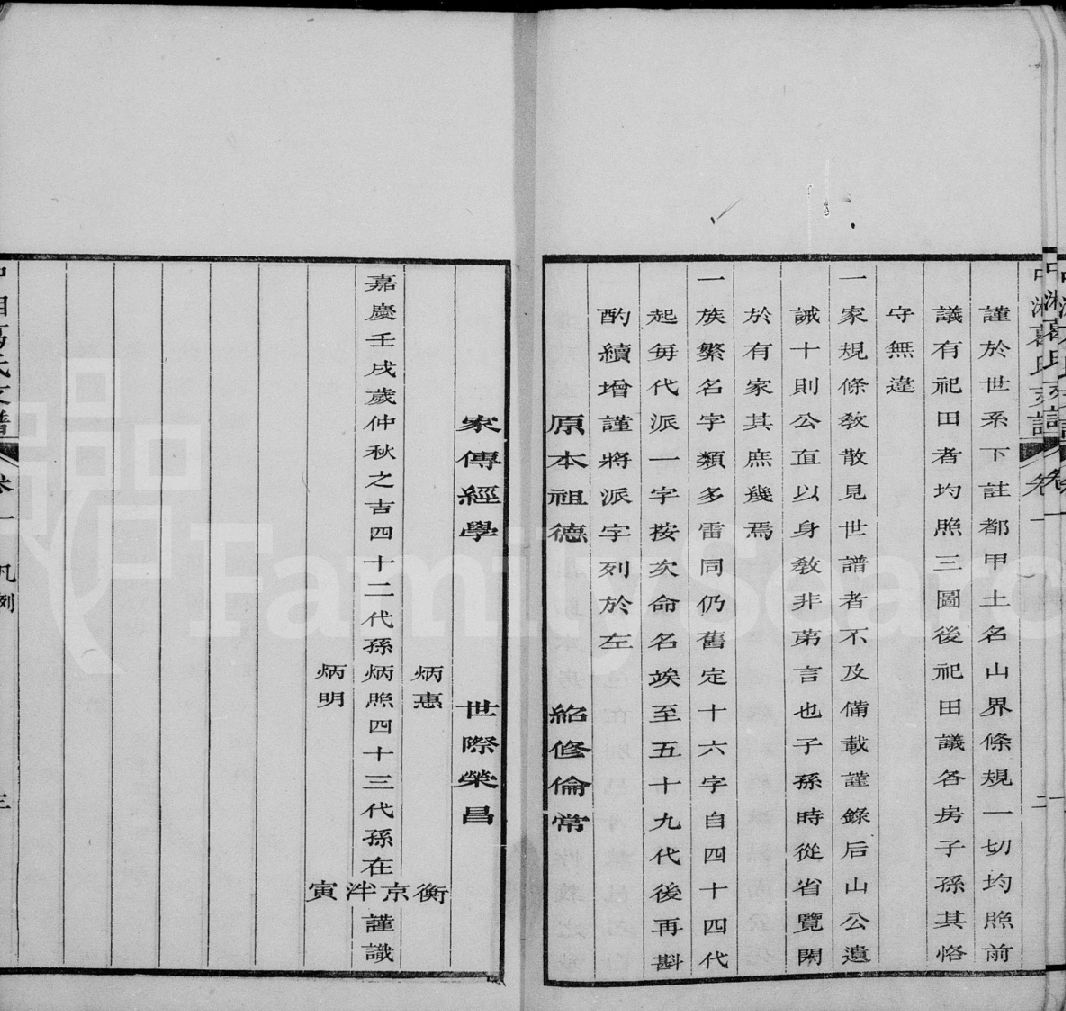 謹於世系下註都甲土名山界條規一切均照前
議有祀田者均照三圖後祀田議各房子孫其恪
守無違
一家規條教散見世譜者不及備載謹錄后山公遺
誡十則公直以身教非第言也子孫時從省覽閑
於有家其庶幾焉
一族繁名字類多雷同仍舊定十六字自四十四代
起每代派一字按次命名竢至五十九代後再斟
酌續增謹將派字列於左
原本祖德 紹修倫常
家傳經學 世際榮昌
炳惠
嘉慶壬戌歲仲秋之吉四十二代孫炳照四十三代孫在衡京泮寅謹識
炳明
卷一 凡例 三
FamilySearc